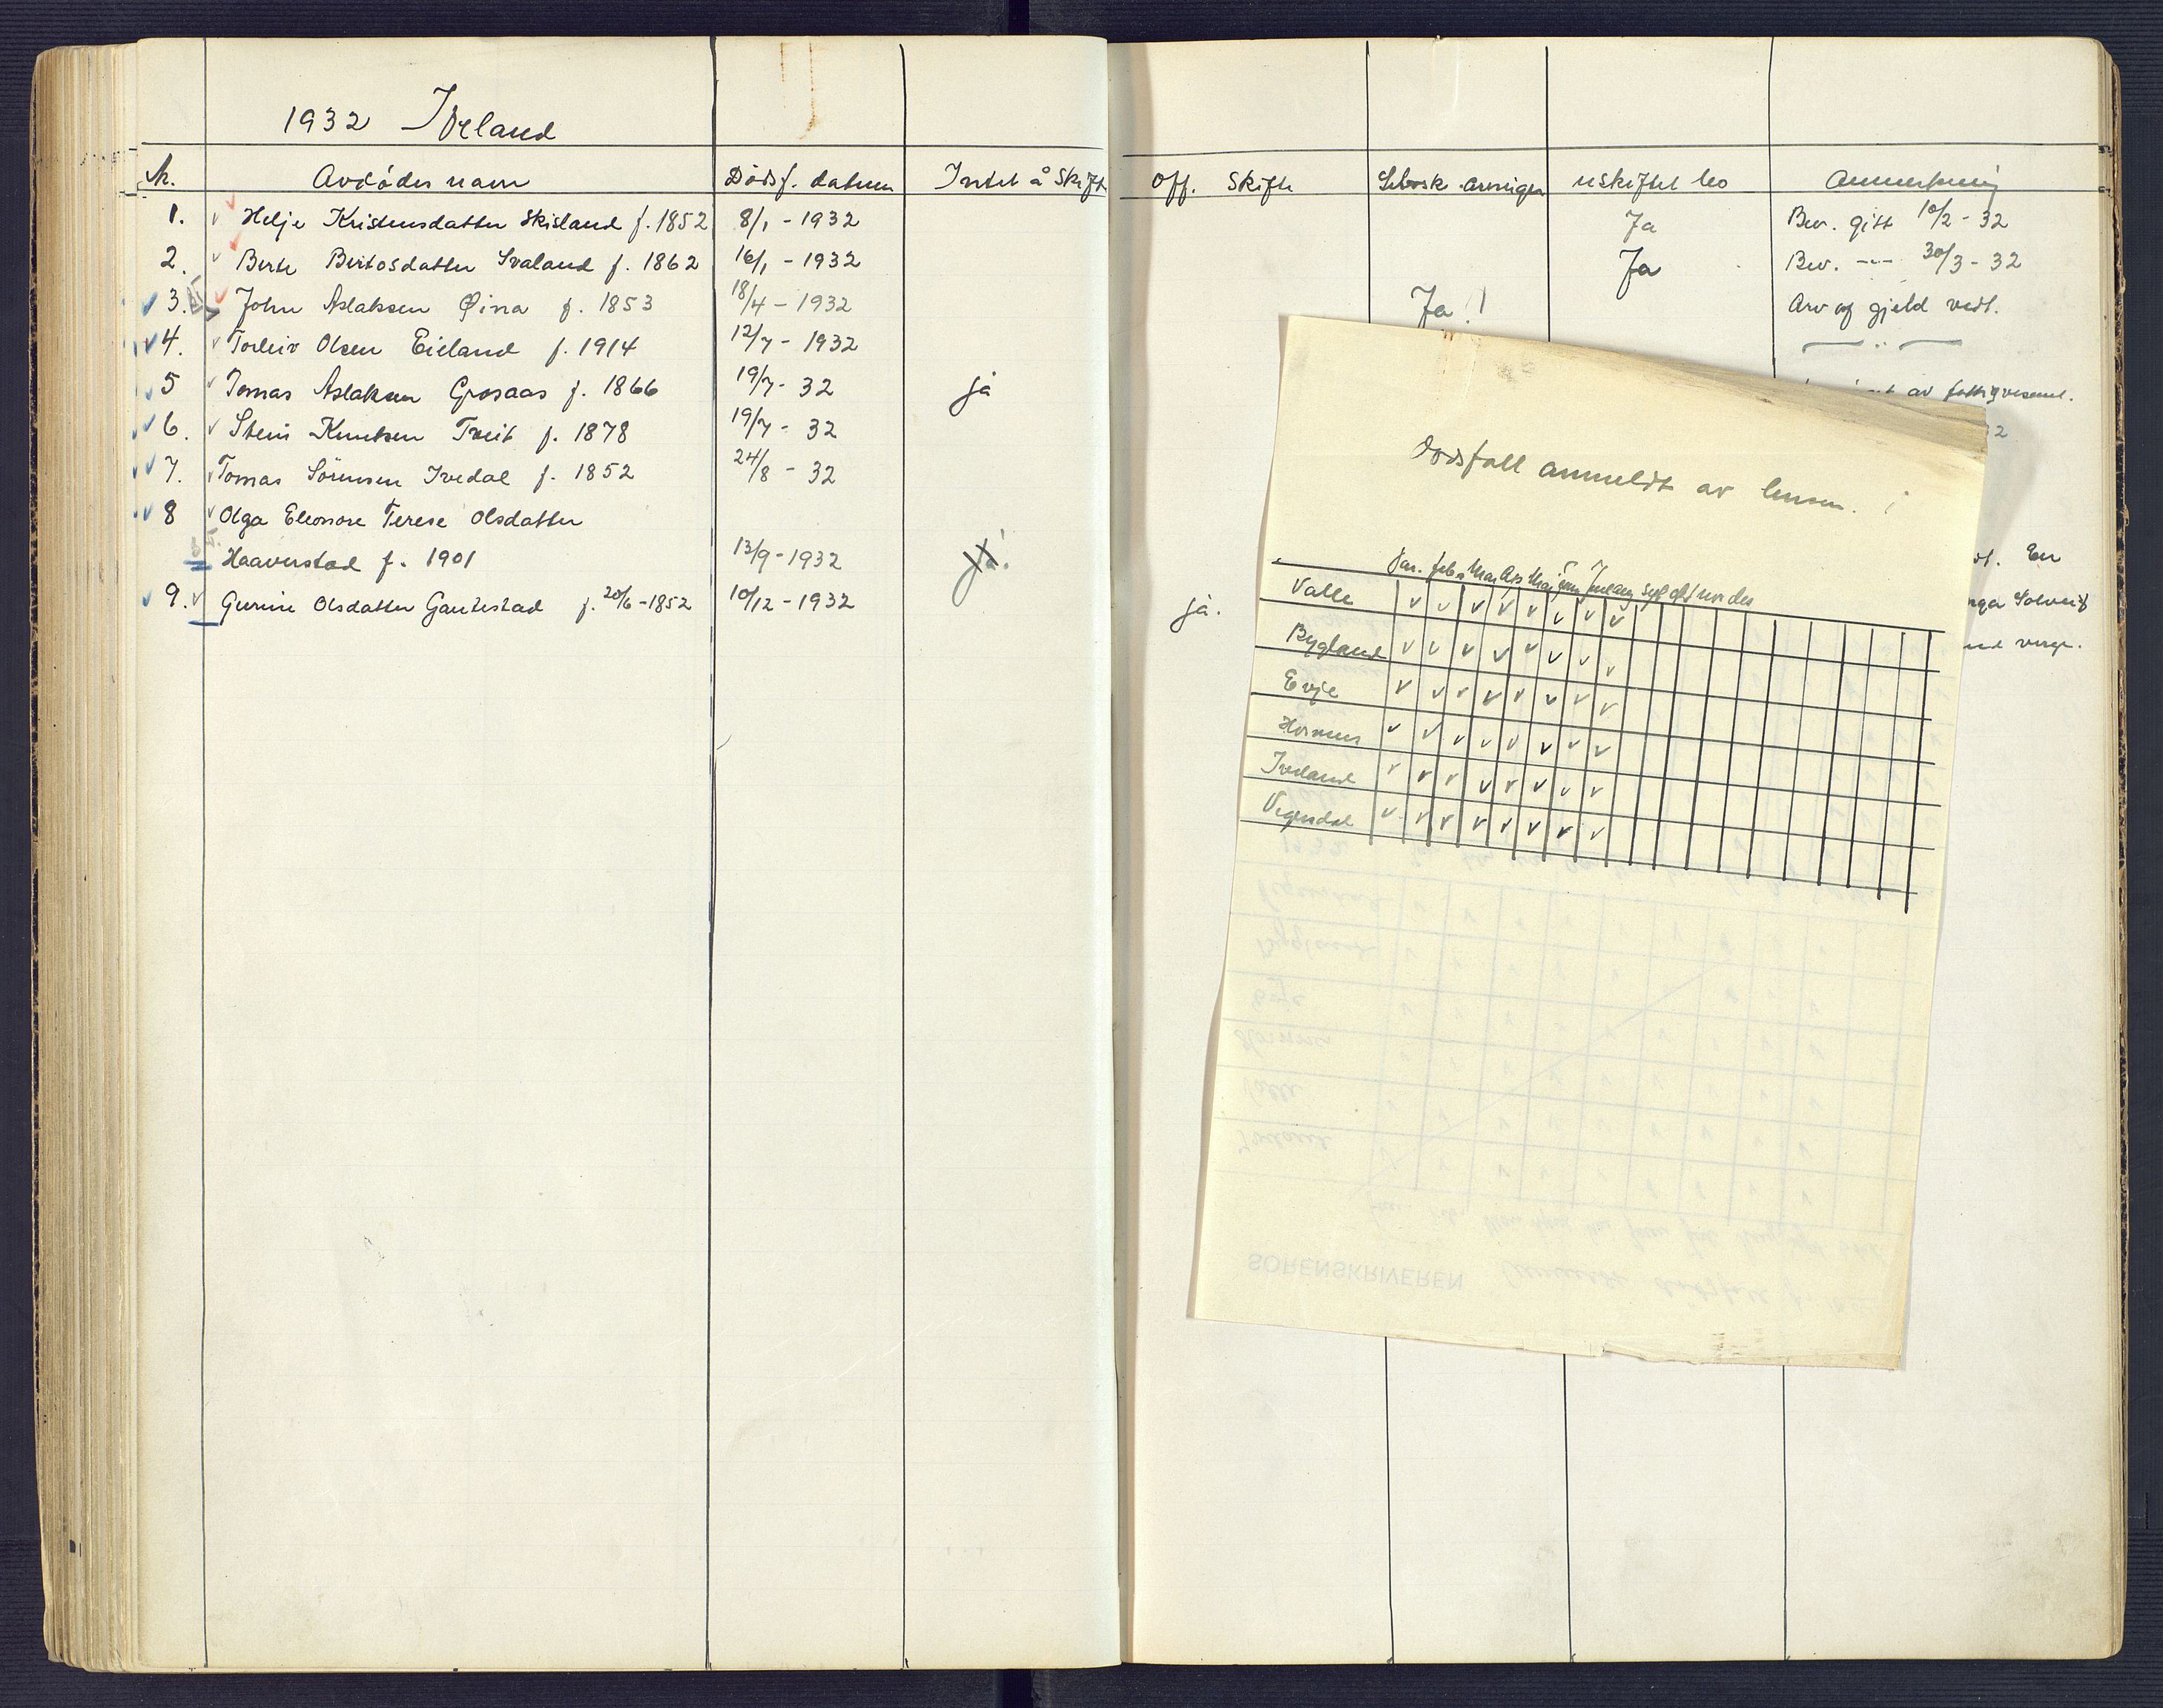 1932 Iveland
Nr. Avdødes navn Dödsf. datum Intet å Skifte Off. Skifte Selvsk. arvinger uskiftet bo Anmerkning
1. Helje Kristensdatter Skisland f. 1852 8/1 - 1932 Ja Bev. gitt 10/2 - 32
2. Berte Bertosdatter Svaland f. 1862 16/1 - 1932 Ja Bev. --- 30/3 - 32
3. John Aslaksen Øina f. 1853 18/4 - 1932 Ja! Arv og gjeld vedt.
4. Torleiv Olsen Eieland f. 1914 12/7 - 1932 — " —
5 Tomas Aslaksen Grosaas f. 1866 19/7 - 32 ja av fattigvesenet.
6. Stein Knutsen Tveit f. 1878 19/7 - 32
7. Tomas Sörensen Ivedal f. 1852 24/8 - 32
8 Olga Eleonore Terese Olsdatter
Haaverstad f. 1901 13/9 - 1932 ja. En
9. Gurine Olsdatter Gautestad f. 20/6 - 1852 10/12 - 1932 ja. Solveig
verge.
Dodsfall anmeldt av lensm. i
Jan. feb. Mar Apr Mai Jun Jul aug sept okt nov des
Valle v v v v v v v v
Bygland v v v v v v v v
Evje v v v v v v v v
Hornnes v v v v v v v v
Iveland v v v v v v v v
Vegusdal v v v v v v v v
SORENSKRIVEREN